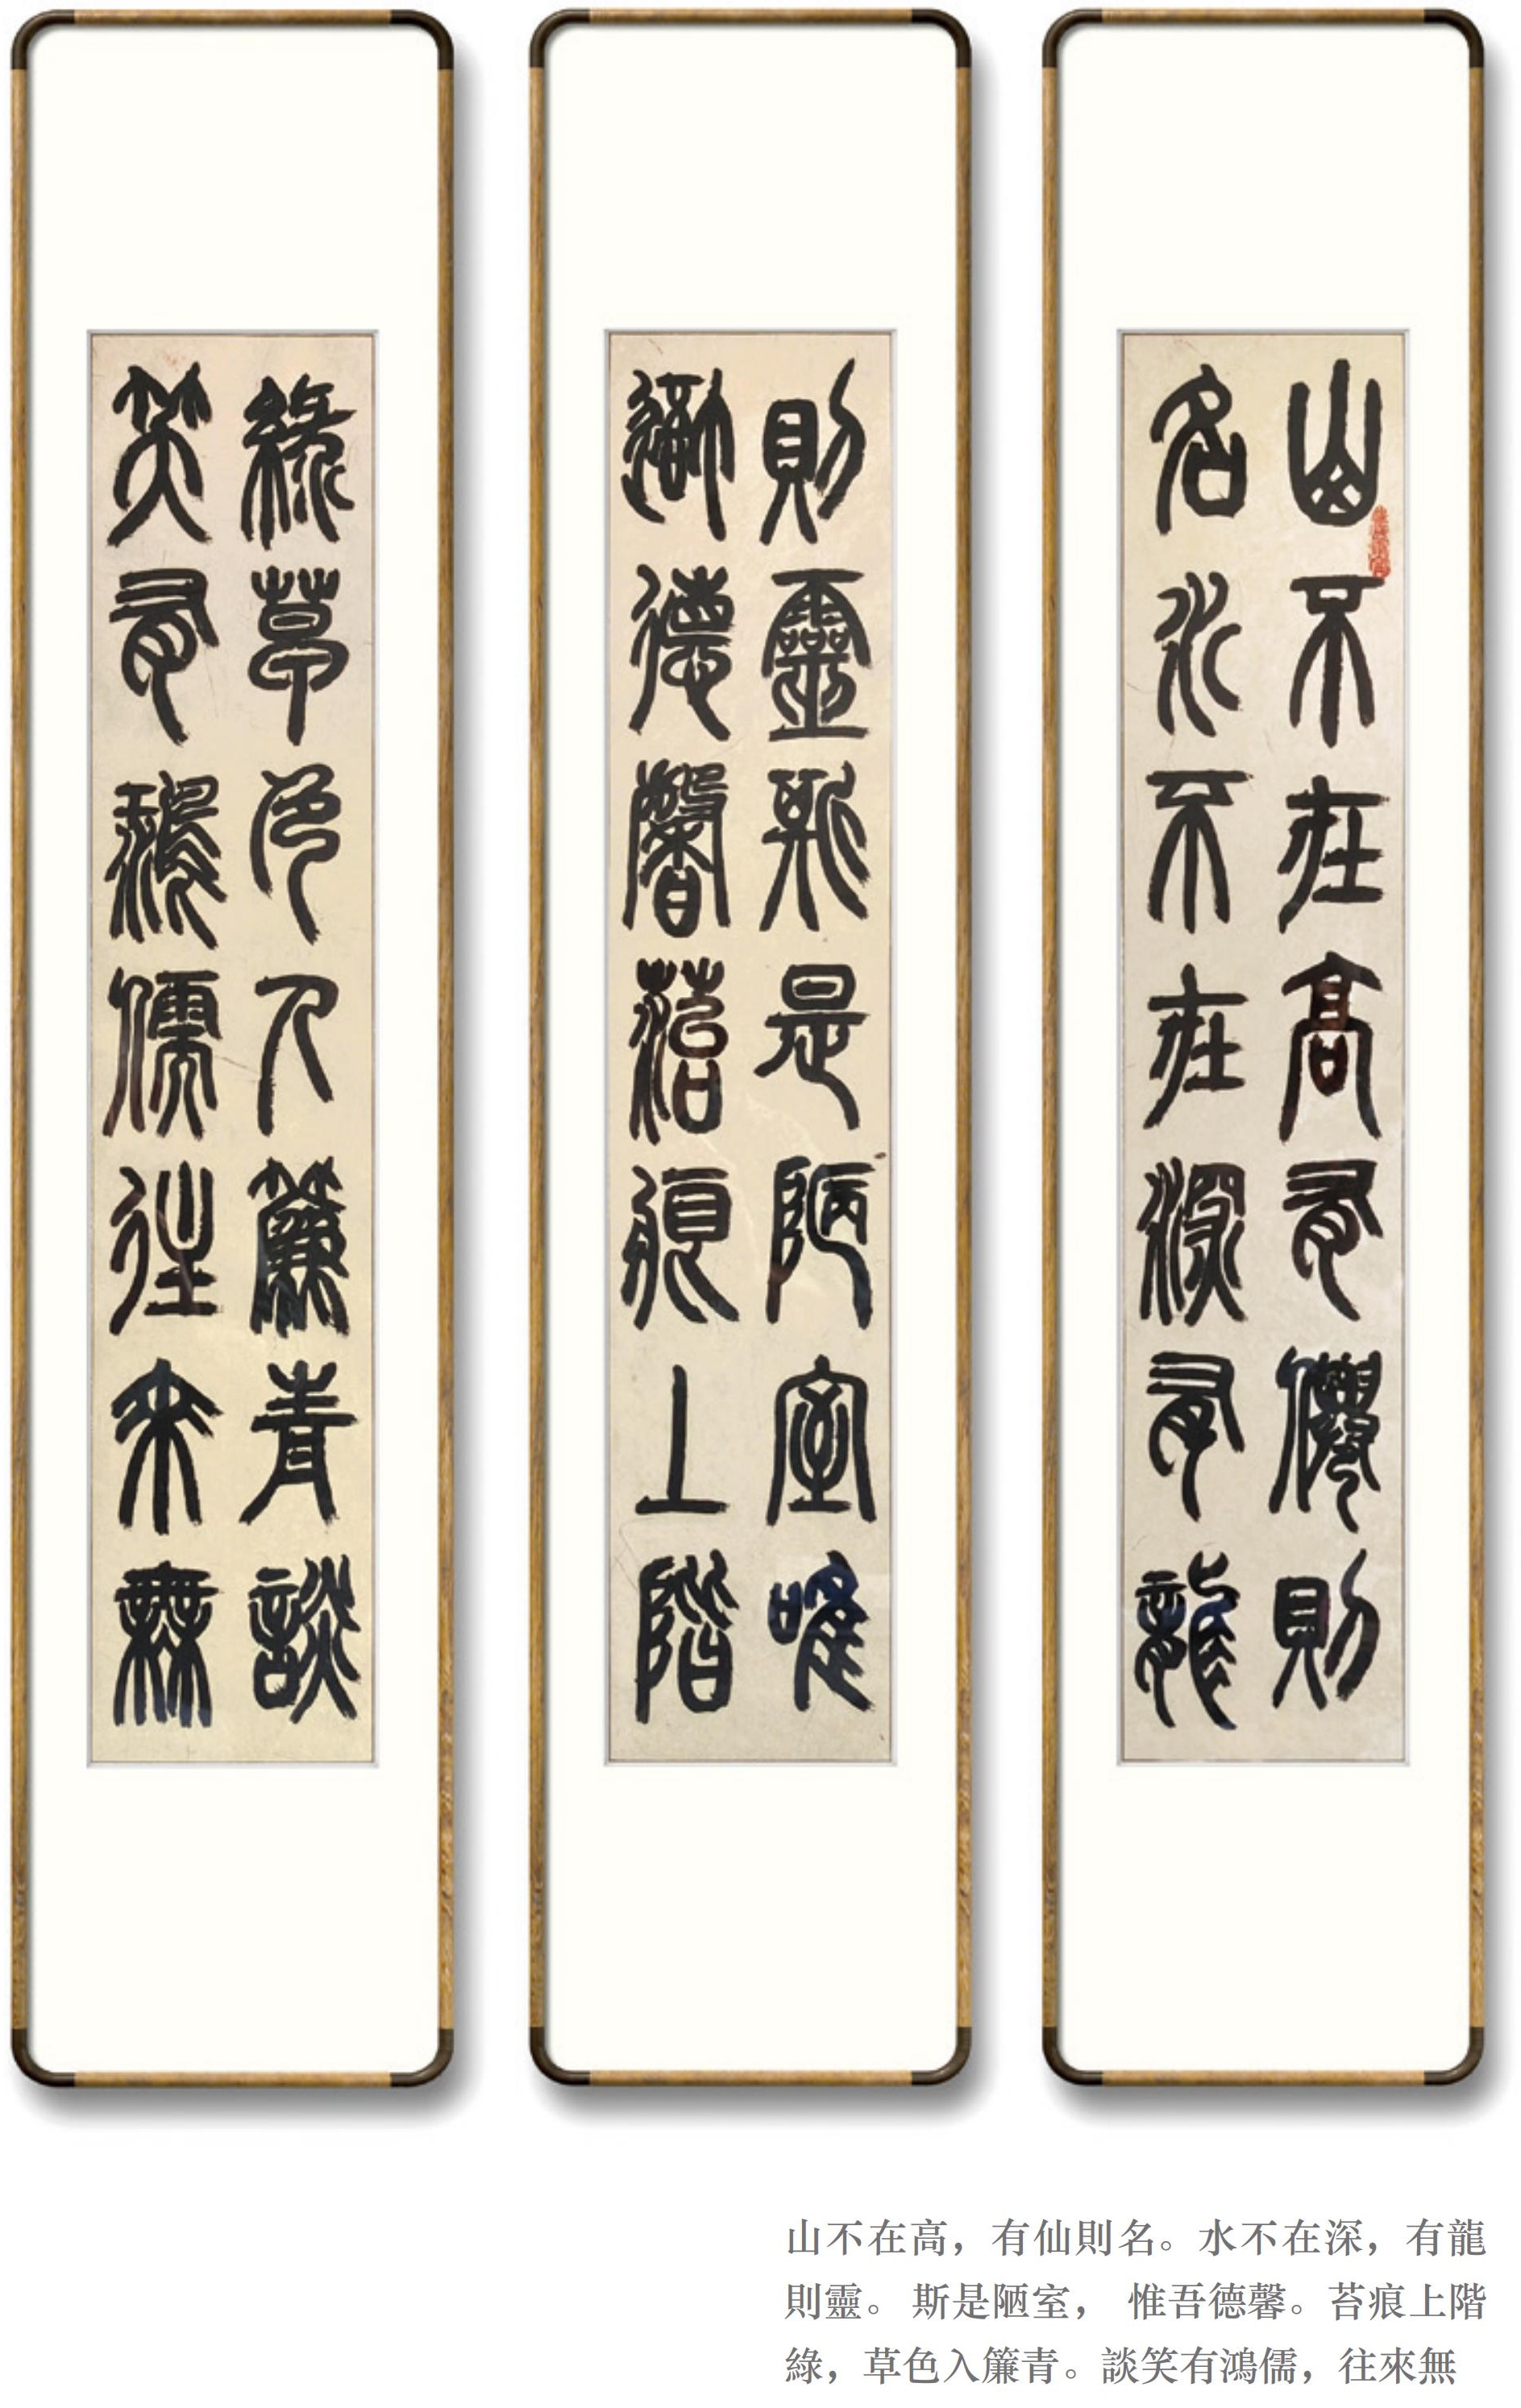 山不在高有僊則
名水不在深有龍
則靈斯是陋室唯
德馨落痕上階
綠草色入簾青談
笑有鴻儒往來無
山不在高，有仙則名。水不在深，有龍
則靈。 斯是陋室， 惟吾德馨。苔痕上階
綠，草色入簾青。談笑有鴻儒，往來無